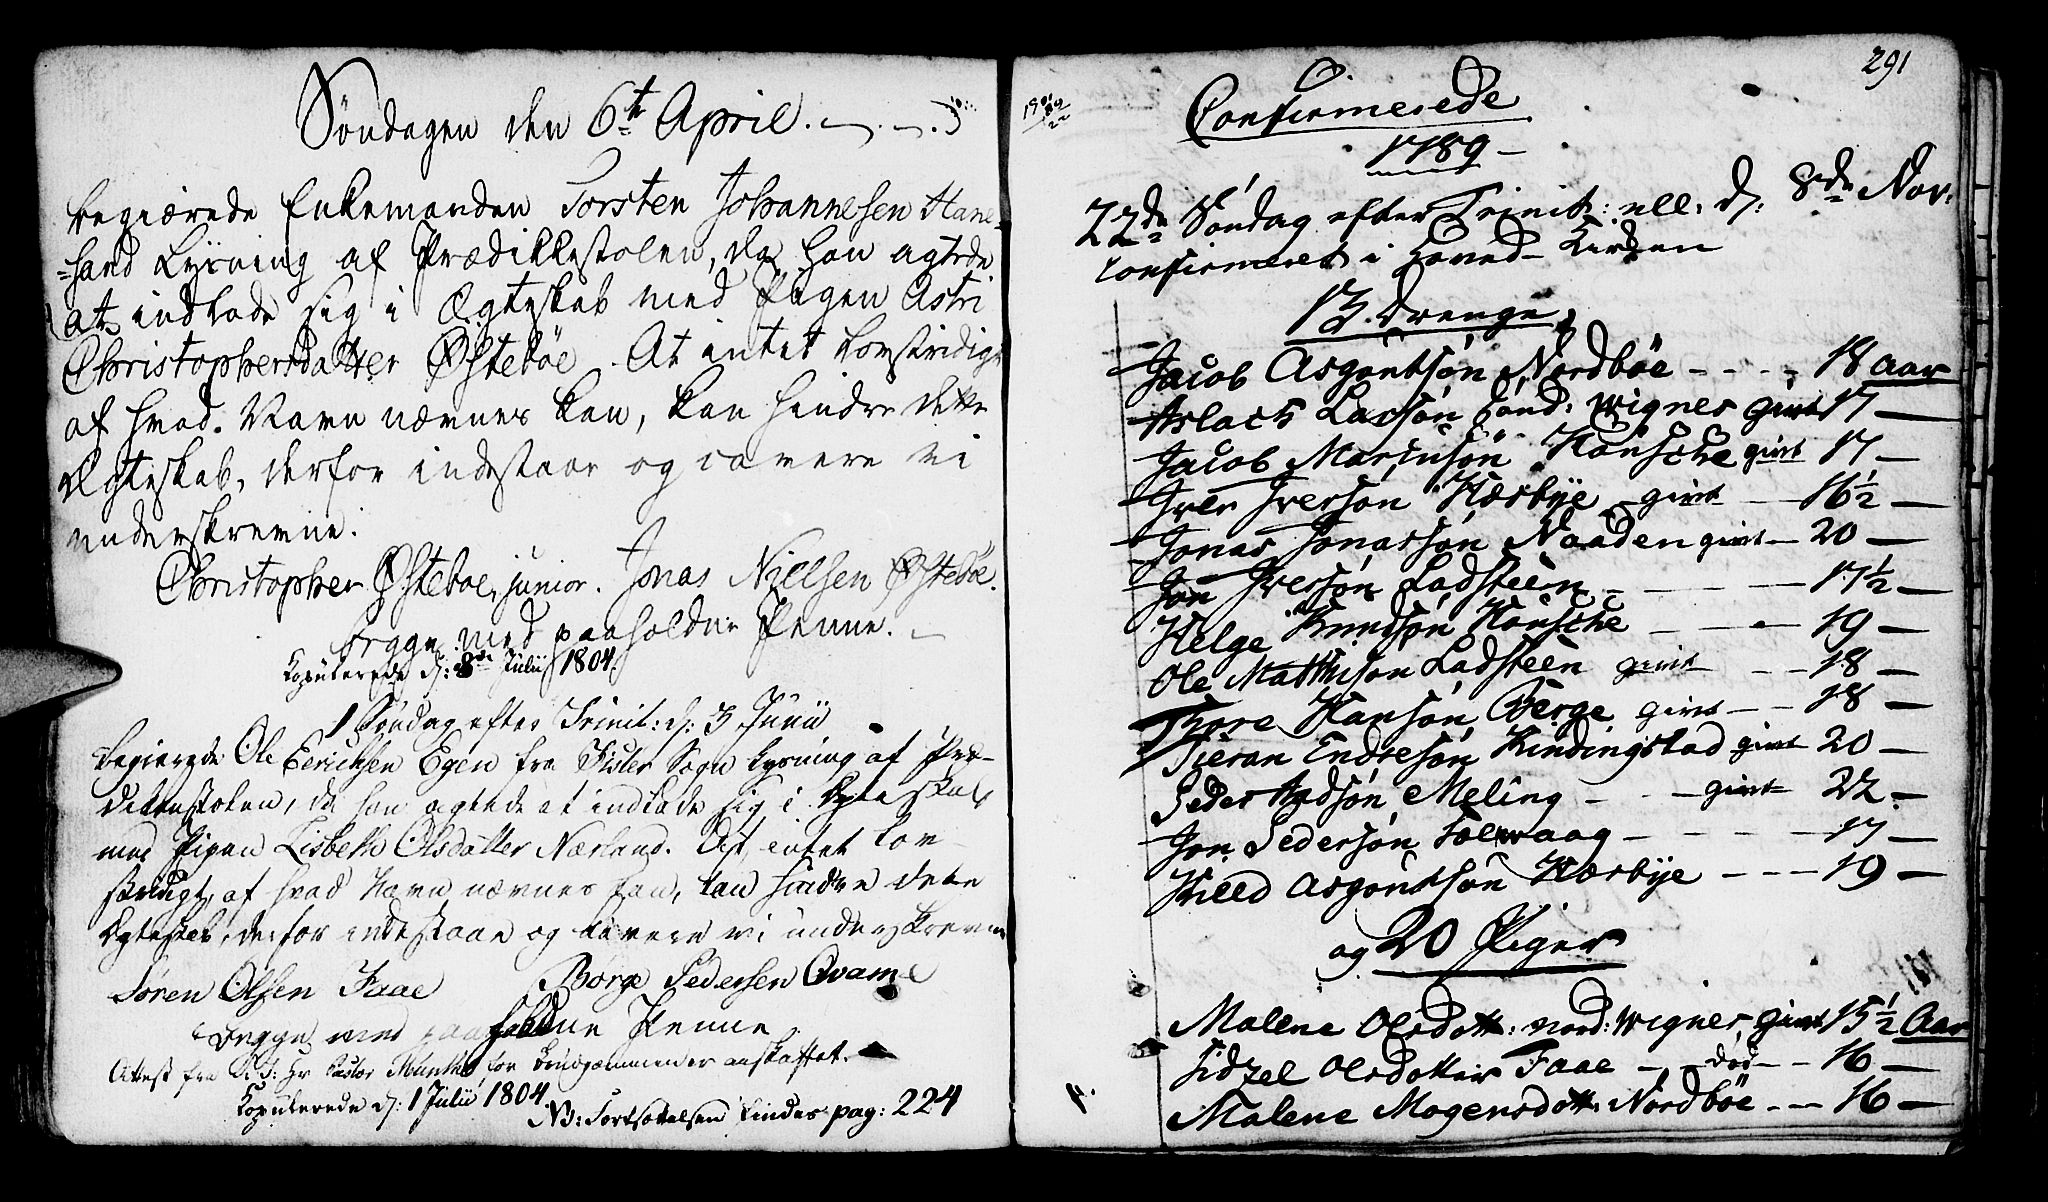 Søndagen den 6te April.
begiærede Enkemanden Torsten Johannesen Hane-
hand Lysning af Prædikkestolen, da han agtede
at indlade sig i Ægteskab med Pigen Astri
Christophersdatter Østebøe. At intet Lovstridigt
af hvad Navn nævnes kan, kan hindre dette
Ægteskab, derfor indestaar og cavere vi
underskrevne.
Christopher Østeboe, junior. Jonas Nielsen Østeböe.
begge med paaholdne Penne.
Kopulerede d: 8de Julii 1804.
1 Søndag efter Trinit: d: 3 Junii
begierede Ole Eerichsen Egen fra Fister Sogn Lysning af Præ-
dikkestolen, da han agtede at indlade sig i Ægteskab
med Pigen Lisbeth Olsdatter Nærland. At intet Lov-
stridigt, af hvad Navn nævnes kan, kan hindre dette
Ægteskab, derfor indestaar og cavere vi underskrevne
Søren Olsen Faae Børge Pedersen Qvame
begge med paaholdne Penne.
Attest fra S. T: Hr Pastor Munthe for Brudgommen er anskaffet.
Kopulerede d: 1 Julii 1804
NB: Fortsættelsen findes pag: 224
291
Confirmerede
1789
22de Søndag efter Trinit: ell: d: 8de Nov:
Confirmeret i Hoved-Kirken
13 Drenge
Jacob Asgoutsøn Nordbøe - - - - 18 Aar
Aslach Larsøn Sønd: Wignes givt 17 —
Jacob Marcusøn Hausche givt 17 —
Iver Iversøn Hæsbye givt — 16½ —
Jonas Jonassøn Naaden givt — 20 —
Jon Iversøn Ladsteen — — — 17½ —
Helge Knudsøn Hausche — — 19 —
Ole Matthisøn Ladsteen givt — 18 —
Thore Hansøn Berge givt — 18 —
Tieran Endresøn Kindingstad givt 20 —
Peder Aadsøn Meling - - givt — 22 —
Jon Pedersøn Solwaag — — — 17 —
Kield Asgoutsøn Hæsbye - - - 19 —
og 20 Piger
Malene Olsdott: nord: Wignes givt 15½ Aar
Sidzel Olsdotter Faae - død - - 16 —
Malene Mogensdott: Nordböe - - 16 —